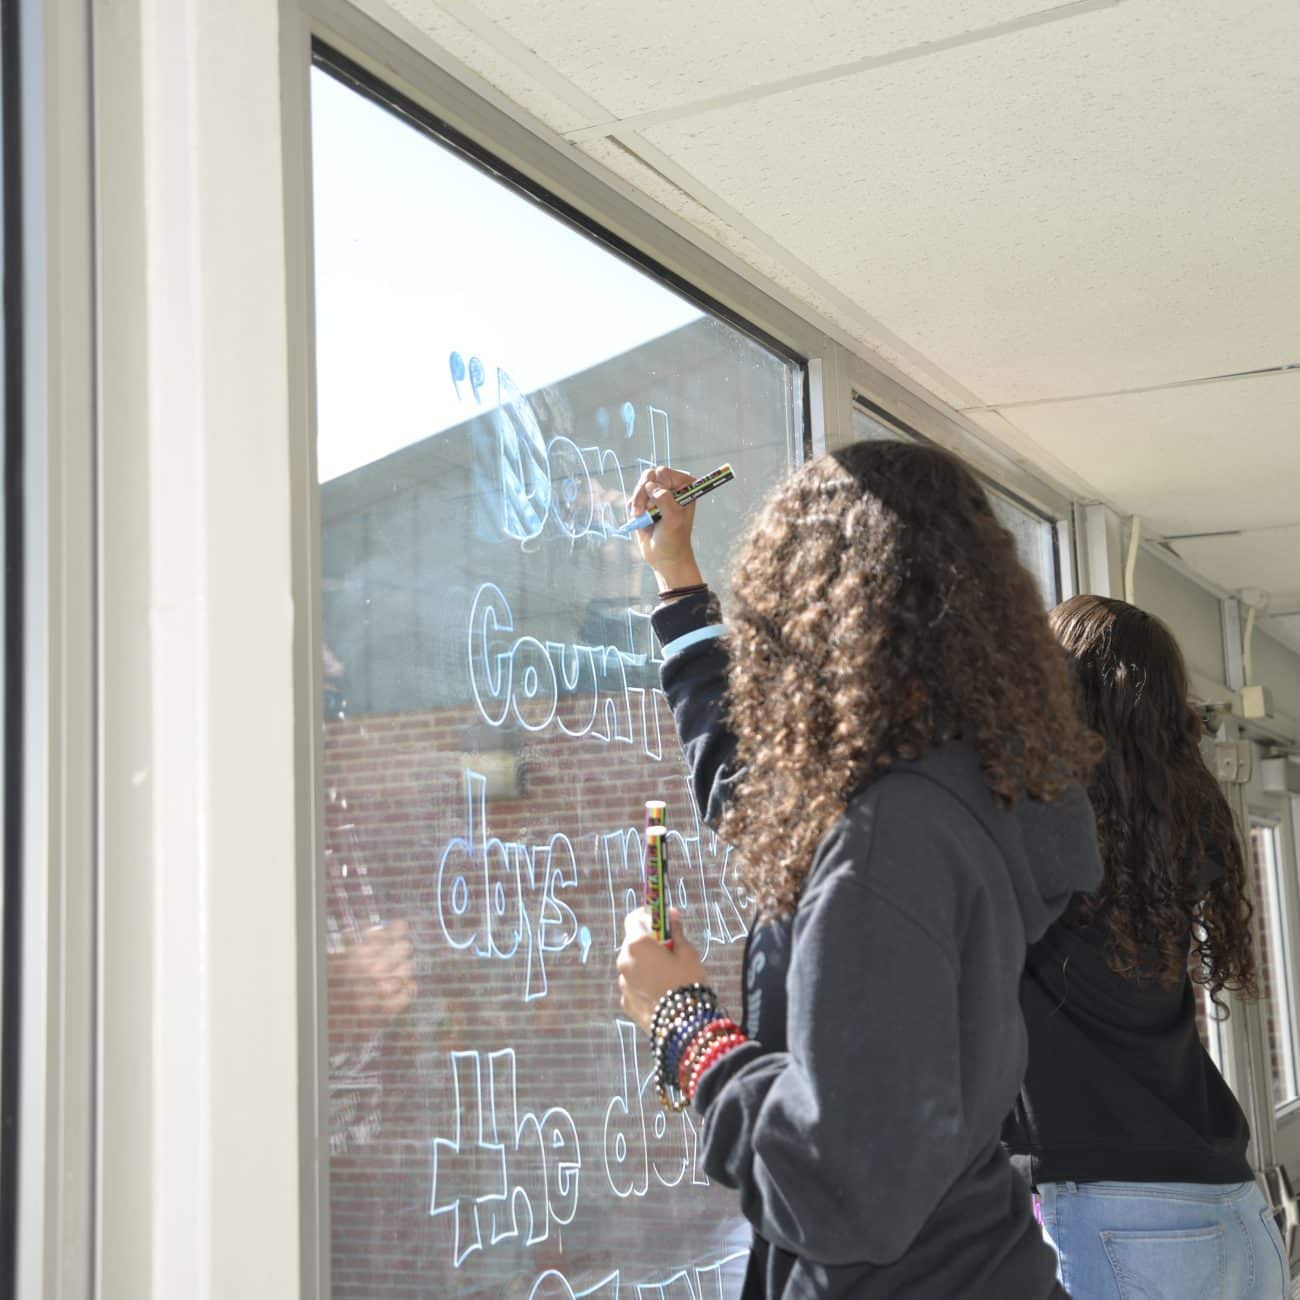 "Don't
Count
days, make
the day